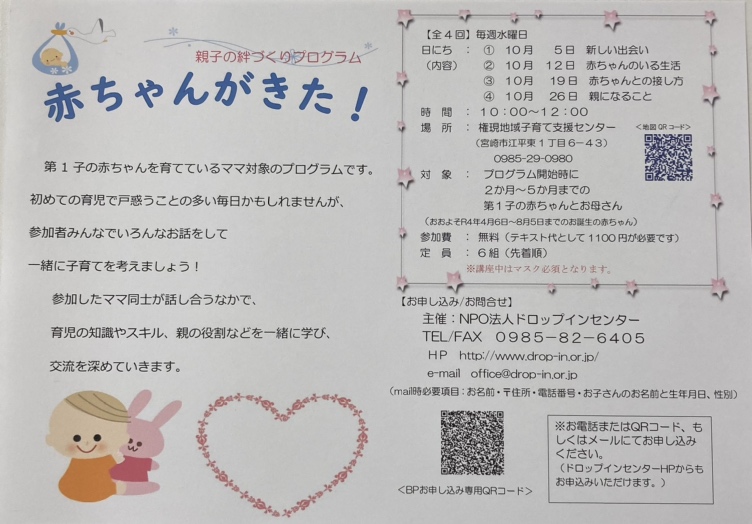 親子の絆づくりプログラム
赤ちゃんがきた！
第1子の赤ちゃんを育てているママ対象のプログラムです。
初めての育児で戸惑うことの多い毎日かもしれませんが、
参加者みんなでいろんなお話をして
一緒に子育てを考えましょう！
参加したママ同士が話し合うなかで、
育児の知識やスキル、親の役割などを一緒に学び、
交流を深めていきます。
【全４回】毎週水曜日
日にち ： ① 10月 5日 新しい出会い
（内容） ② 10月 12日 赤ちゃんのいる生活
③ 10月 19日 赤ちゃんとの接し方
④ 10月 26日 親になること
時 間 ： １０：００〜１２：００
場 所 ： 権現地域子育て支援センター
（宮崎市江平東１丁目６−４３）
0985-29-0980
＜地図QRコード＞
対 象 ： プログラム開始時に
２か月〜５か月までの
第１子の赤ちゃんとお母さん
（おおよそR4年4月6日〜8月5日までのお誕生の赤ちゃん）
参加費 ： 無料（テキスト代として1100円が必要です）
定 員 ： ６組（先着順）
※講座中はマスク必須となります。
【お申し込み/お問合せ】
主催：NPO法人ドロップインセンター
TEL/FAX ０９８５−８２−６４０５
ＨＰ http://www.drop-in.or.jp/
e-mail office@drop-in.or.jp
（mail時必要項目：お名前・〒住所・電話番号・お子さんのお名前と生年月日、性別）
＜BPお申し込み専用QRコード＞
※お電話またはQRコード、も
しくはメールにてお申し込み
ください。
（ドロップインセンターHPからも
お申込みいただけます。）